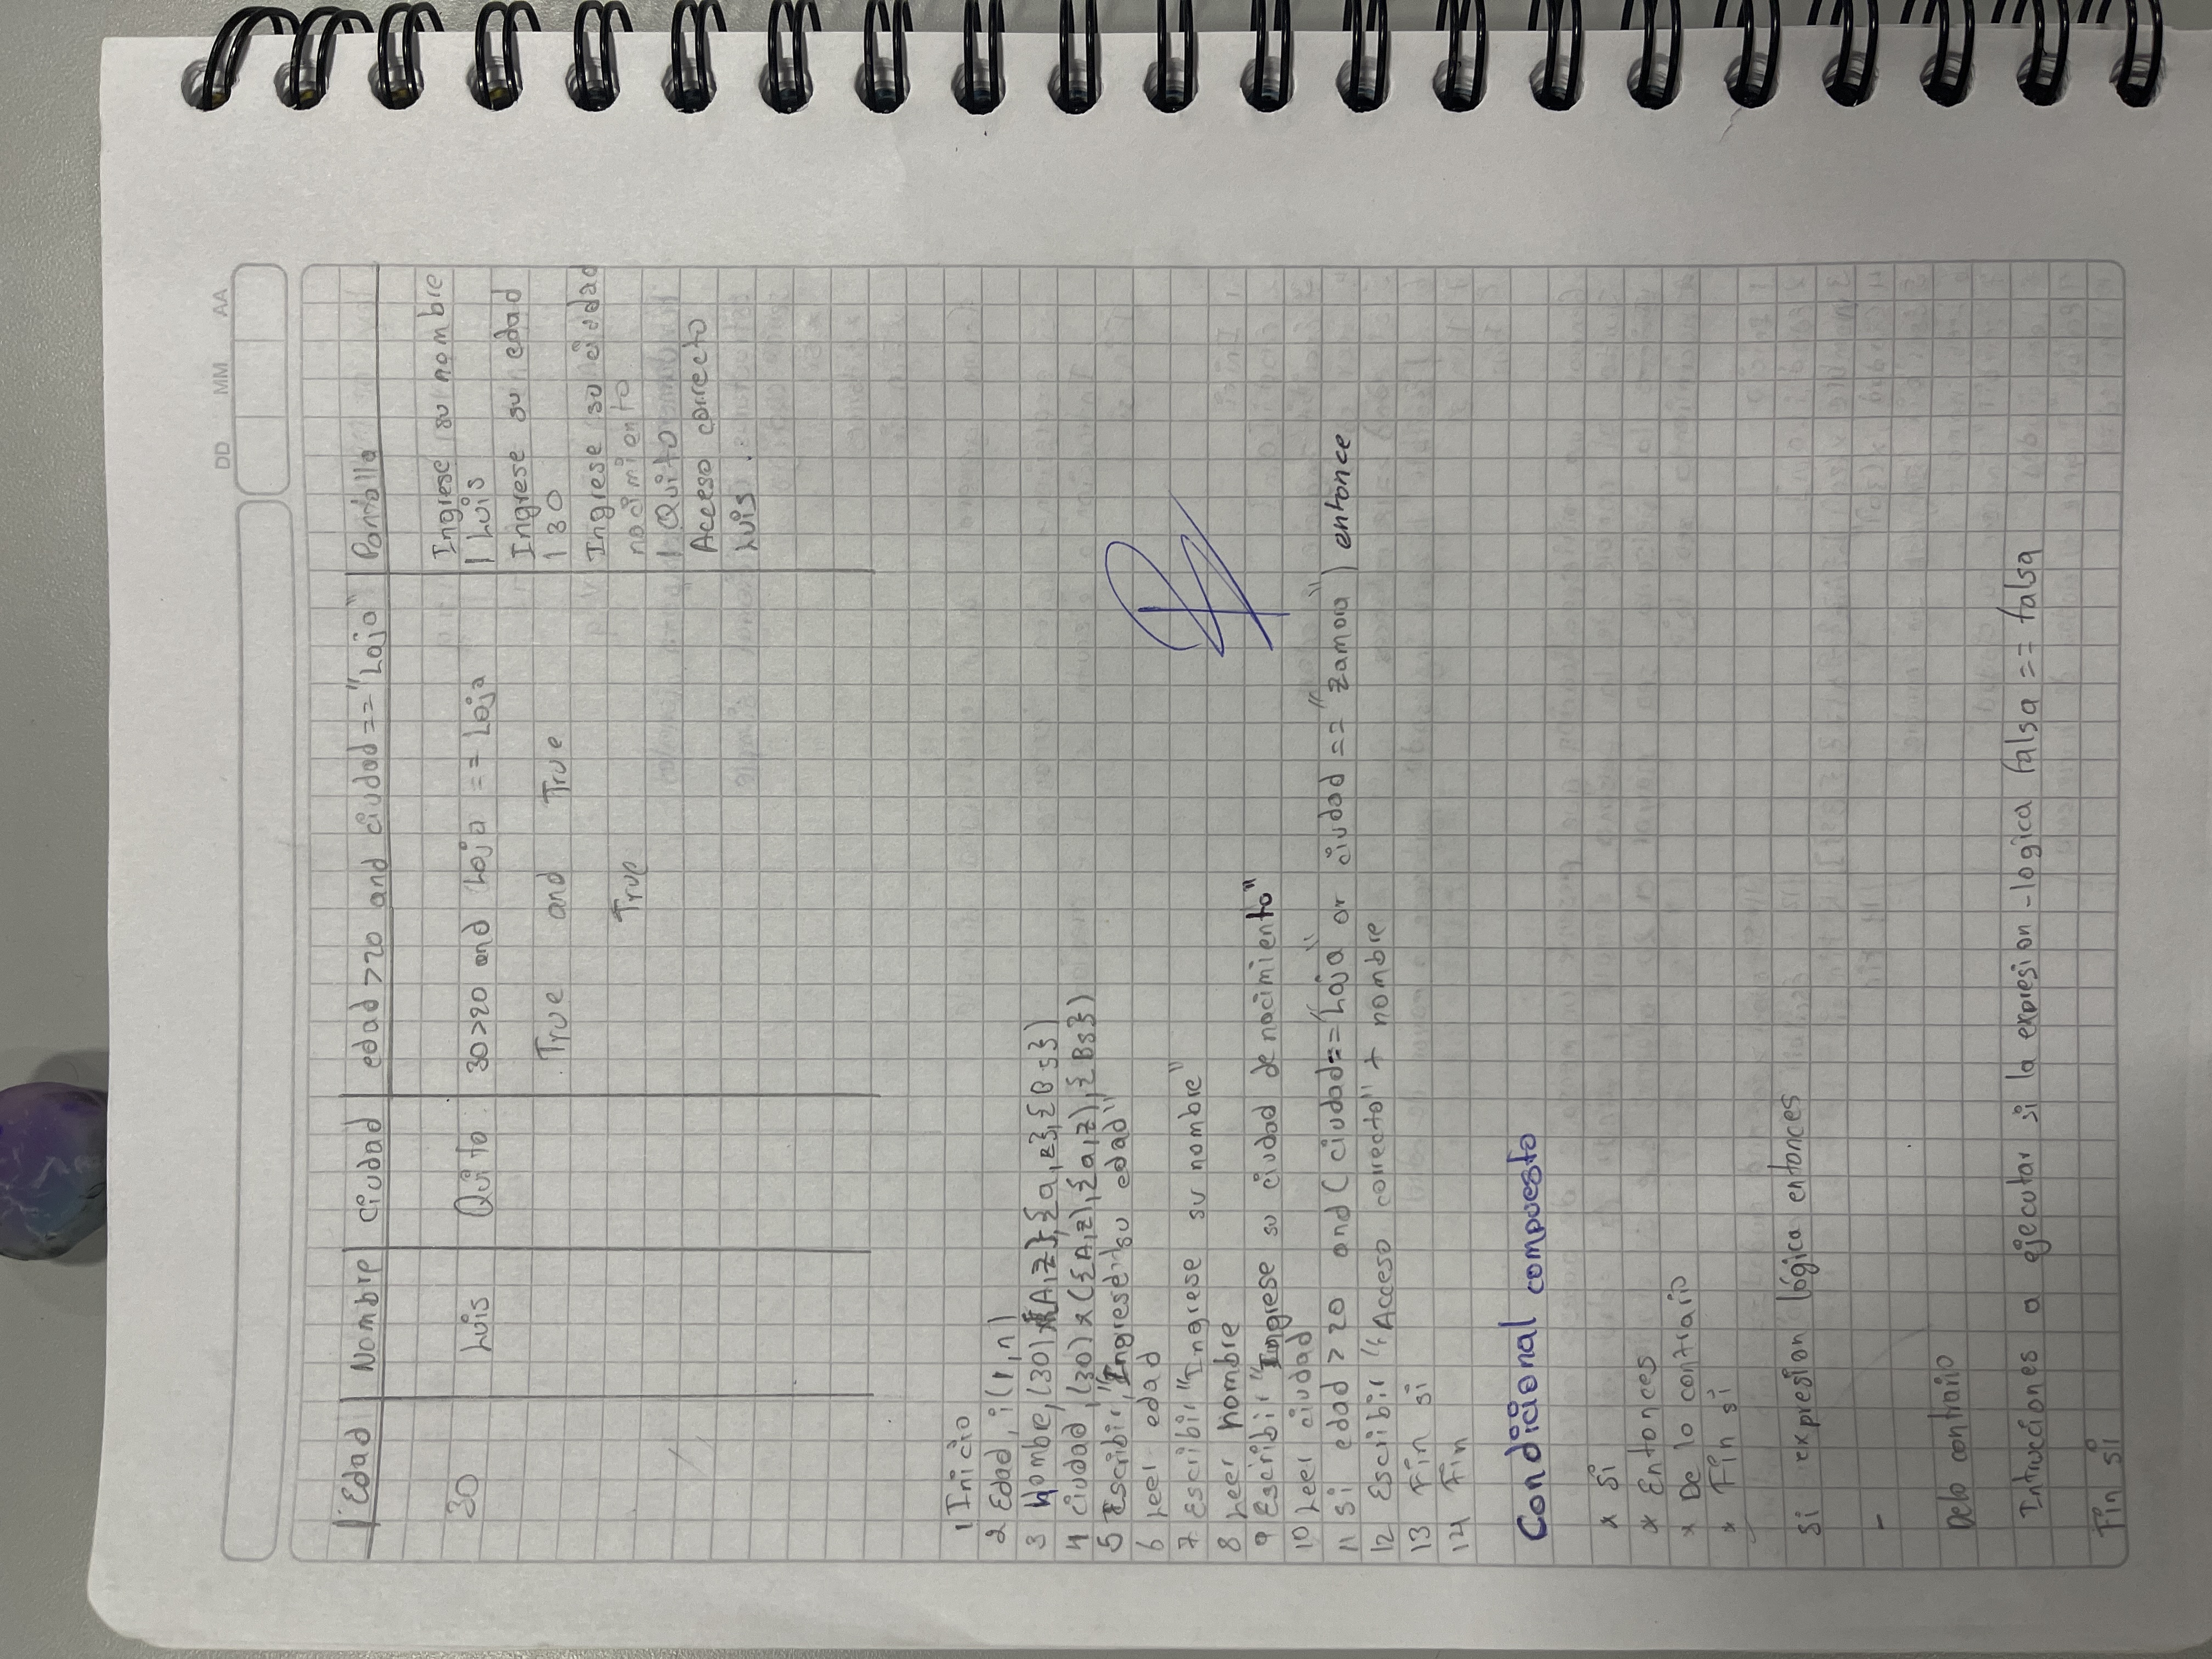 DD MM AA
Edad Nombre Ciudad edad >20 and ciudad == "Loja" Pantalla
Ingrese su nombre
30 Luis Quito 30>20 and Loja == Loja | Luis
Ingrese su edad
True and True | 30
Ingrese su ciudad
True nacimiento
| Quito
Acceso correcto
Luis .
1 Inicio
2 Edad, i(1,n)
3 Nombre, (30) x {A,z}, {a,z}, {Bs})
4 ciudad, (30) x ({A,z), {a,z), {Bs})
5 Escribir, "Ingrese su edad"
6 Leer edad
7 Escribir "Ingrese su nombre"
8 Leer nombre
9 Escribir "Ingrese su ciudad de nacimiento"
10 Leer ciudad
11 si edad > 20 and ( ciudad == "Loja" or ciudad == "Zamora") entonce
12 Escribir "Acceso correcto" + nombre
13 Fin si
14 Fin
Condicional compuesto
* Si
* Entonces
* De lo contrario
* Fin si
si expresion lógica entonces
-
Delo contrario
Intrucciones a ejecutar si la expresion-logica falsa == falsa
Fin si